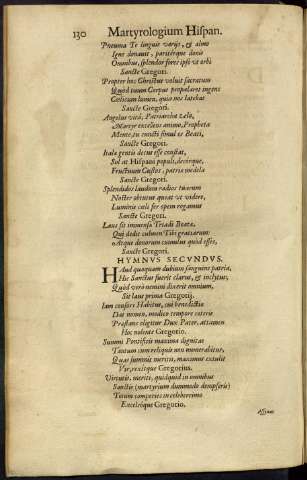 130 Martyrologium Hiſpan.
Pneuma Te linguis varijs, & almo
Igne donauit, pariterque donis
Omnibus, ſplendor fores ipſi vt orbi
Sancte Gregori.
Propter hoc Chriſtus voluit ſacratum
Quòd tuum Corpus propalaret ingens
Cœlicum lumen, quia nos latebat
Sancte Gregori.
Angelus vitâ, Patriarcha zelo,
Martyr excellens animo, Propheta
Mente, tu cunctis ſimul es Beati,
Sancte Gregori.
Itala gentis decus eſſe conſtat,
Sol at Hiſpani populi, decúrque,
Fructuum Cuſtos, patriæ medela
Sancte Gregori.
Splendidos laudum radios tuarum
Noſter obtutus queat vt videre,
Luminis cœli fer opem rogamus
Sancte Gregori.
Laus ſit immenſa Triadi Beatæ,
Qui dedit culmen Tibi gratiarum:
Atque donorum cumulus quòd eſſes,
Sancte Gregori.
HYMNVS SECVNDVS.
HAud quaquam dubium ſanguine patria,
Hic Sanctus fuerit clarus, & inclytus,
Quòd verò nemini dixerit omnium,
Sit laus prima Gregorij.
Iam conſors Habitus, cui benedictio
Dat nomen, modico tempore cæteris
Præſtans eligitur Dux Pater, attamen
Hoc nolente Gregorio.
Summi Pontificis maxima dignitas
Tantum cum reliquis non numerabitur,
Quas ſummis meritis, maximus extulit
Vir, rexitque Gregorius.
Virtutis, meriti, quidquid in omnibus
Sanctis (martyrium dummodo dempſeris)
Totum comperies in celeberrimo
Excelſóque Gregorio.